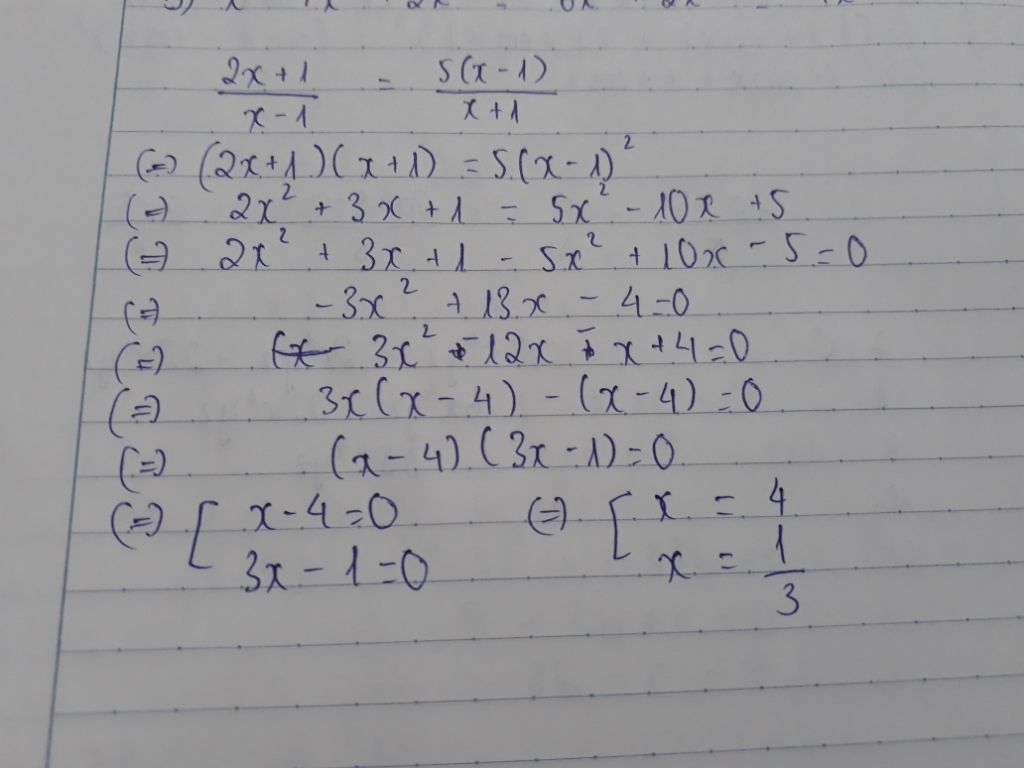 2x+1 / x-1 = 5(x-1) / x+1
(=) (2x+1)(x+1) = 5(x-1)²
(=) 2x² + 3x + 1 = 5x² - 10x + 5
(=) 2x² + 3x + 1 - 5x² + 10x - 5 = 0
(=) -3x² + 13x - 4 = 0
(=) 3x² - 12x - x + 4 = 0
(=) 3x(x-4) - (x-4) = 0
(=) (x-4)(3x-1) = 0
(=) [ x-4=0 (=) [ x = 4
3x-1=0 x = 1/3